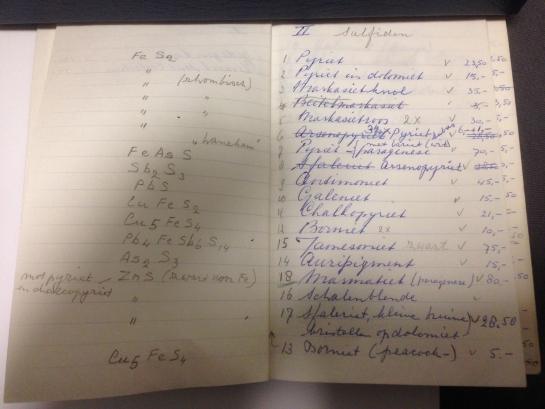 Fe S2
" (rhombisch)
" "
" "
"
" "Waneham"
Fe As S
Sb2 S3
Pb S
Cu Fe S2
Cu5 Fe S4
Pb4 Fe Sb6 S14
As2 S3
met pyriet Zn S (zwart van Fe)
en chalcopyriet
"
"
Cu5 Fe S4
II Sulfiden
1 Pyriet v 23,50
2 Pyriet in dolomiet v 15,-
3 Markasietknol v 35,-
4 Beitelmarkasiet
5 Markasietroos 2x v 30,-
6 Arsenopyriet Pyriet
7 Pyriet paragenese v 70,-
8 Sfaleriet Arsenopyriet v
9 Antimoniet v 45,-
10 Galeniet v 15,-
11 Chalkopyriet v 21,-
12 Borniet 2x v 10,-
15 Jamesoniet zwart v 75,-
14 Auripigment v 15,-
18 Marmatiet (paragenese) v 80,-
16 Schalenblende v
17 Sfaleriet, kleine bruine v 28,50
kristallen op dolomiet
13 Borniet (peacock-) v 5.-